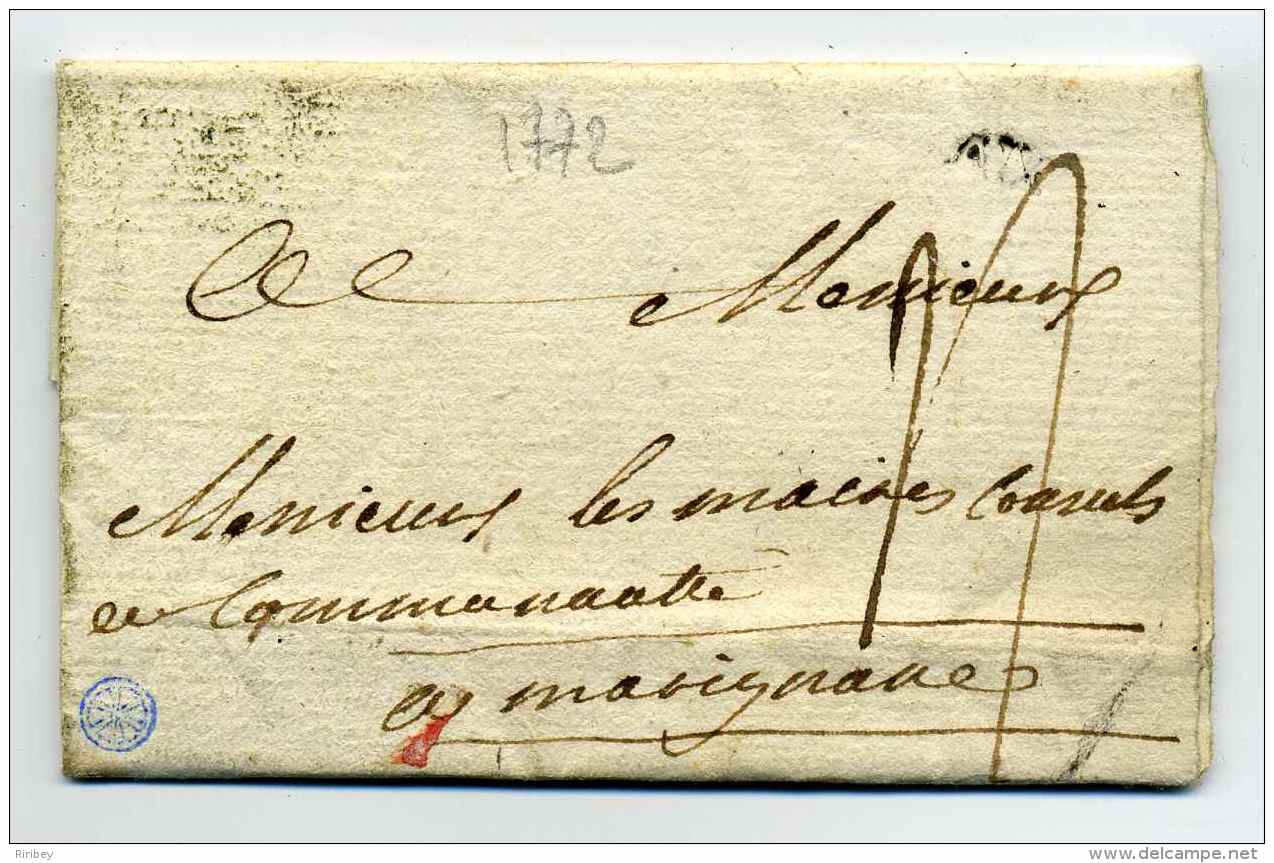 1772
AIX
Messieurs
Messieurs les maires Consuls
et Communautté
a marignane
Riribey
www.delcampe.net